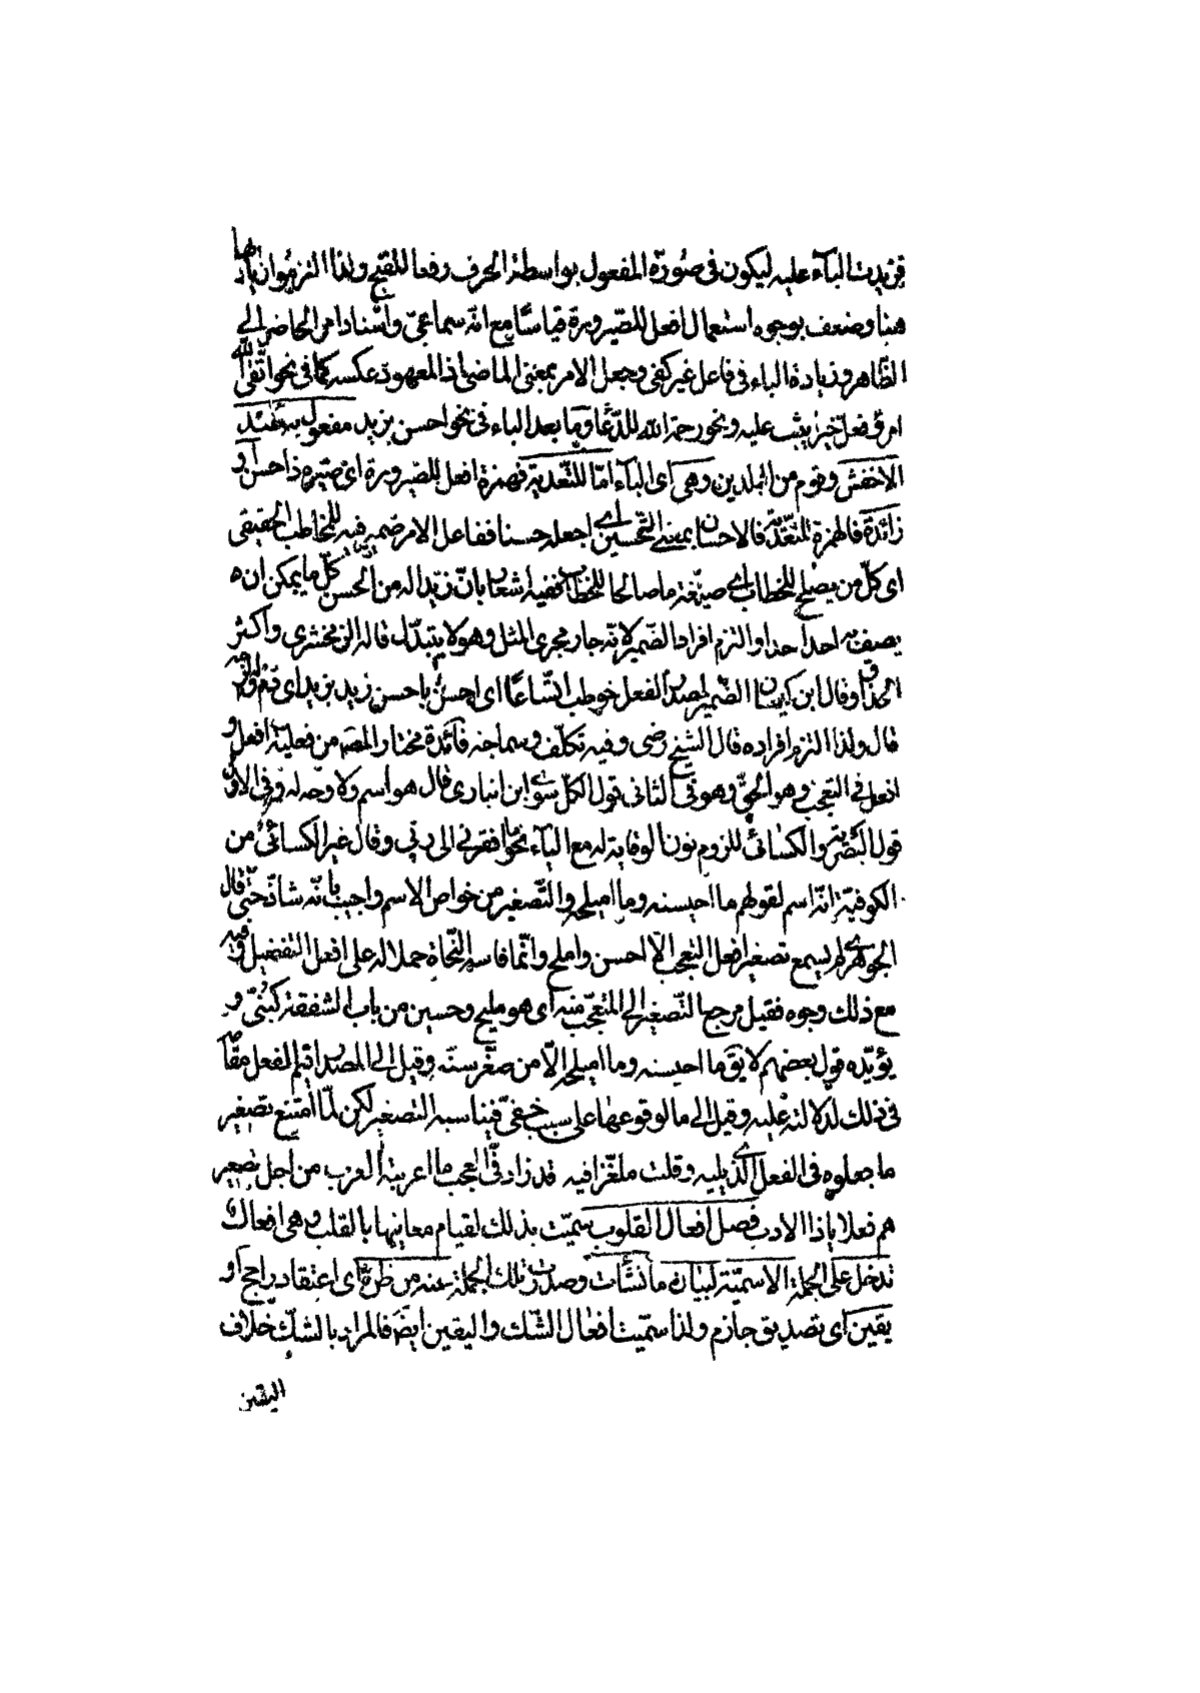 فزيدت الباء عليه ليكون فى صورة المفعول بواسطة الحرف رفعا للقبح ولذا التزموا زيادتها
هنا وضعف بوجوه استعمال افعل للصّيرورة قياسًا مع انّه سماعىّ واسناد امر الحاضر الى
الظّاهر وزيادة الباء فى فاعل غير كفى وجعل الامر بمعنى الماضى اذ المعهود عكسه كما فى نحو اتّقى اللّه
امرؤ فعل خيرا يثب عليه ونحو رحمة اللّه للدّعاء وما بعد الباء فى نحو احسن بزيد مفعول به عند
الاخفش وقوم من البلدين وهى اى الباء امّا للتّعدية فهمزة افعل للصّيرورة اى صيّره ذا حسن او
زائدة فالهمزة للتعدّية فالاحسان بمعنى التّحسين اى اجعله حسنا ففاعل الامر ضمير فيه للمخاطب الحقيقى
اى كلّ من يصلح للخطاب اى صيغة ما صالحا للخطاب ففيه اشعار بانّ زيدا له من الحسن كلّ ما يمكن ان ه
يصف به احد احدا والتزم افراد الضّمير لانّه جار مجرى المثل وهو لا يتبدّل قاله الزمخشرى واكثر
الحذّاق وقال ابن كيسان الضّمير لمصدر الفعل خوطب اتّساعًا اى احسن يا حسن زيد بزيد اى دم والزمه
قال ولذا التزم افراده قال الشيخ رضى وفيه تكلّف وسماجة فائدة مختار المصّ من فعلية افعل و
افعل فى التعجب وهو الحقّ وهو فى الثانى قول الكلّ سوى ابن انبارى قال هو اسم ولا وجه له وفى الاوّل
قول البصريّة والكسائىّ للزوم نون الوقاية له مع الياء نحو ما افقرنى الى ربّى وقال غير الكسائىّ من
الكوفيّة انّه اسم لقولهم ما احيسنه وما اميلحه والتّصغير من خواص الاسم واجيب بانّه شاذّ حتّى قال
الجوهرى لم يسمع تصغير افعل التعجب الّا احسن واملح وانّما قاسه النّحاة حملا له على افعل التفضيل وفيه
مع ذلك وجوه فقيل مرجع التّصغير الى المتعجّب منه اى هو مليح وحسين من باب الشفقة كبُنىّ و
يؤيّده قول بعضهم لا يقّ ما احيسنه وما اميلحه الّا من صغر سنّه وقيل الى المصدر اقيم الفعل مقامه
فى ذلك لدلالته عليه وقيل الى ما لوقوعها على سبب خفىّ فيناسبه التصغير لكن لمّا امتنع تصغير
ما جعلوه فى الفعل الّذى يليه وقلت ملغّزا فيه قد زاد فىّ العجب ما اعربية العرب من اجل تصغير
هم فعلا ياذا الادب فصل افعال القلوب سمّيت بذلك لقيام معانيها بالقلب وهى افعال
تدخل على الجملة الاسميّة لبيان ما نشأت وصدرت تلك الجملة عنه من ظنّ اى اعتقاد راجح او
يقين اى تصديق جازم ولذا سمّيت افعال الشّك واليقين ايضَ فالمراد بالشكّ خلاف
اليقين